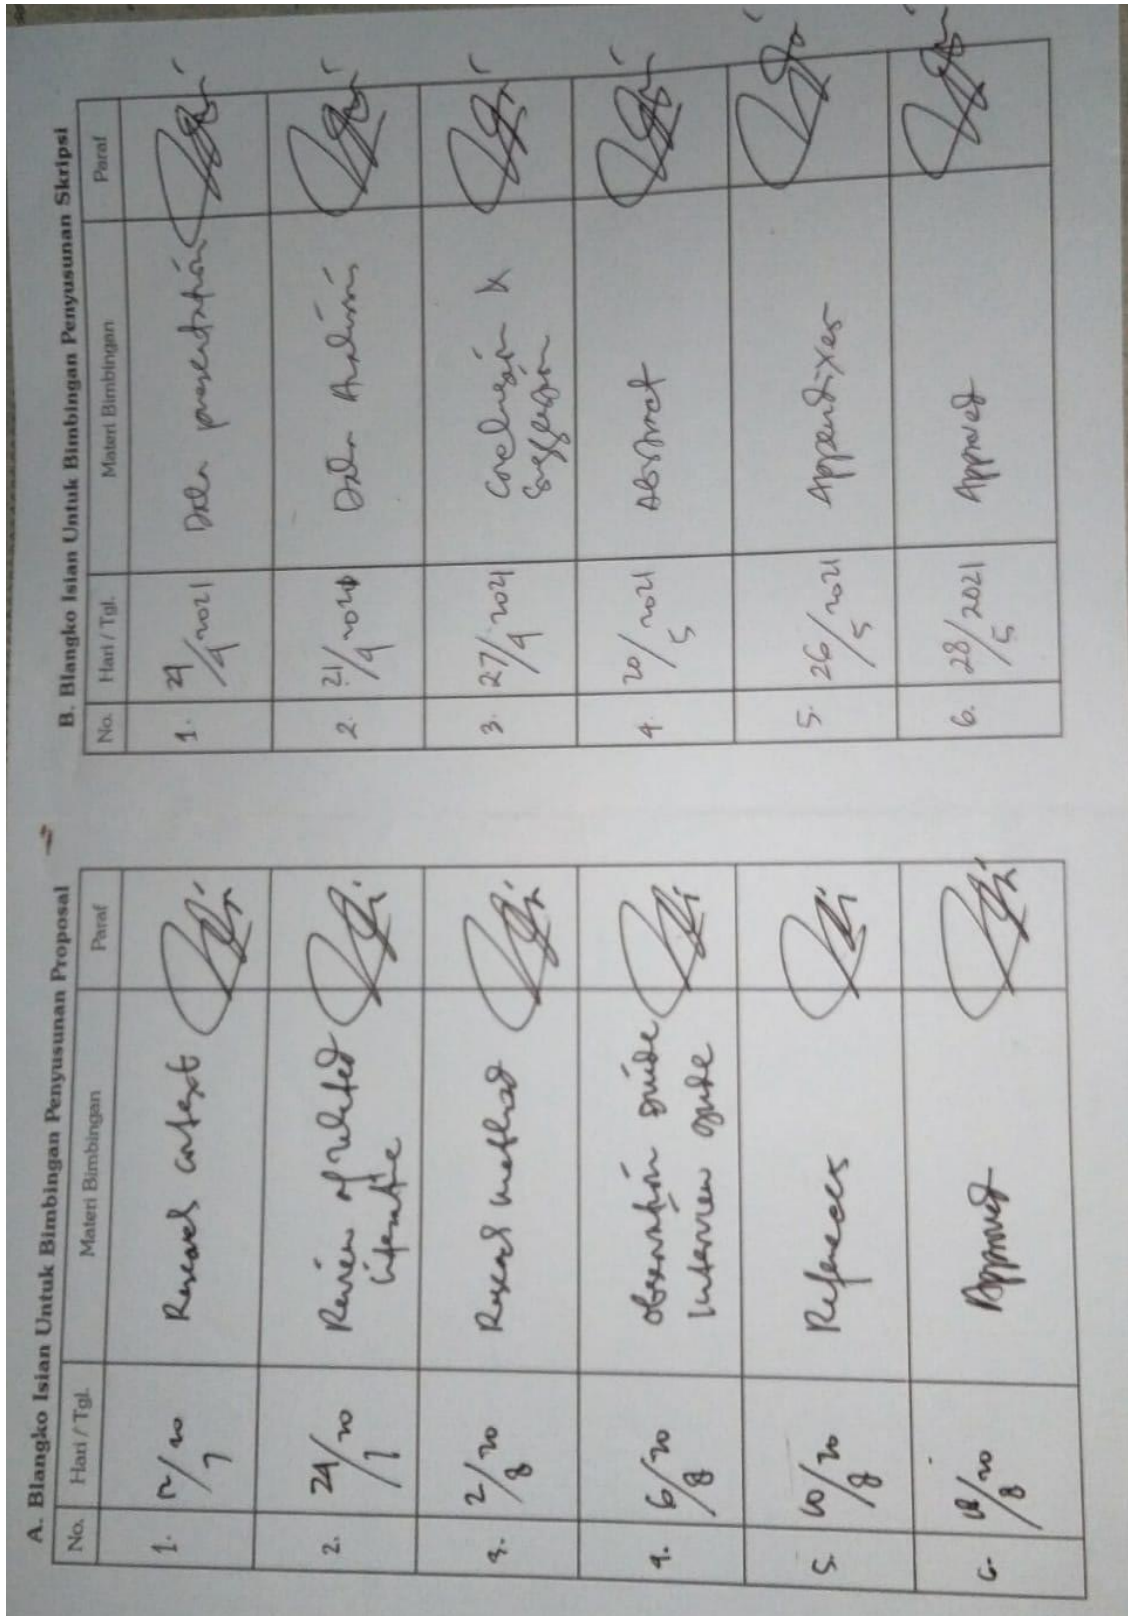 A. Blangko Isian Untuk Bimbingan Penyusunan Proposal
No. Hari / Tgl. Materi Bimbingan Paraf
1. 12/7 20 Research context
2. 24/7 20 Review of related
literature
3. 2/8 20 Research method
4. 6/8 20 observation guide
Interview guide
5. 10/8 20 References
6. /8 20 Approved
B. Blangko Isian Untuk Bimbingan Penyusunan Skripsi
No. Hari / Tgl. Materi Bimbingan Paraf
1. /4 2021 Data presentation
2. 21/4 Data Analisis
3. 27/4 2021 Conclusion &
Suggestion
4. 20/5 2021 Abstract
5. 26/5 2021 Appendixes
6. 28/5 2021 Approved